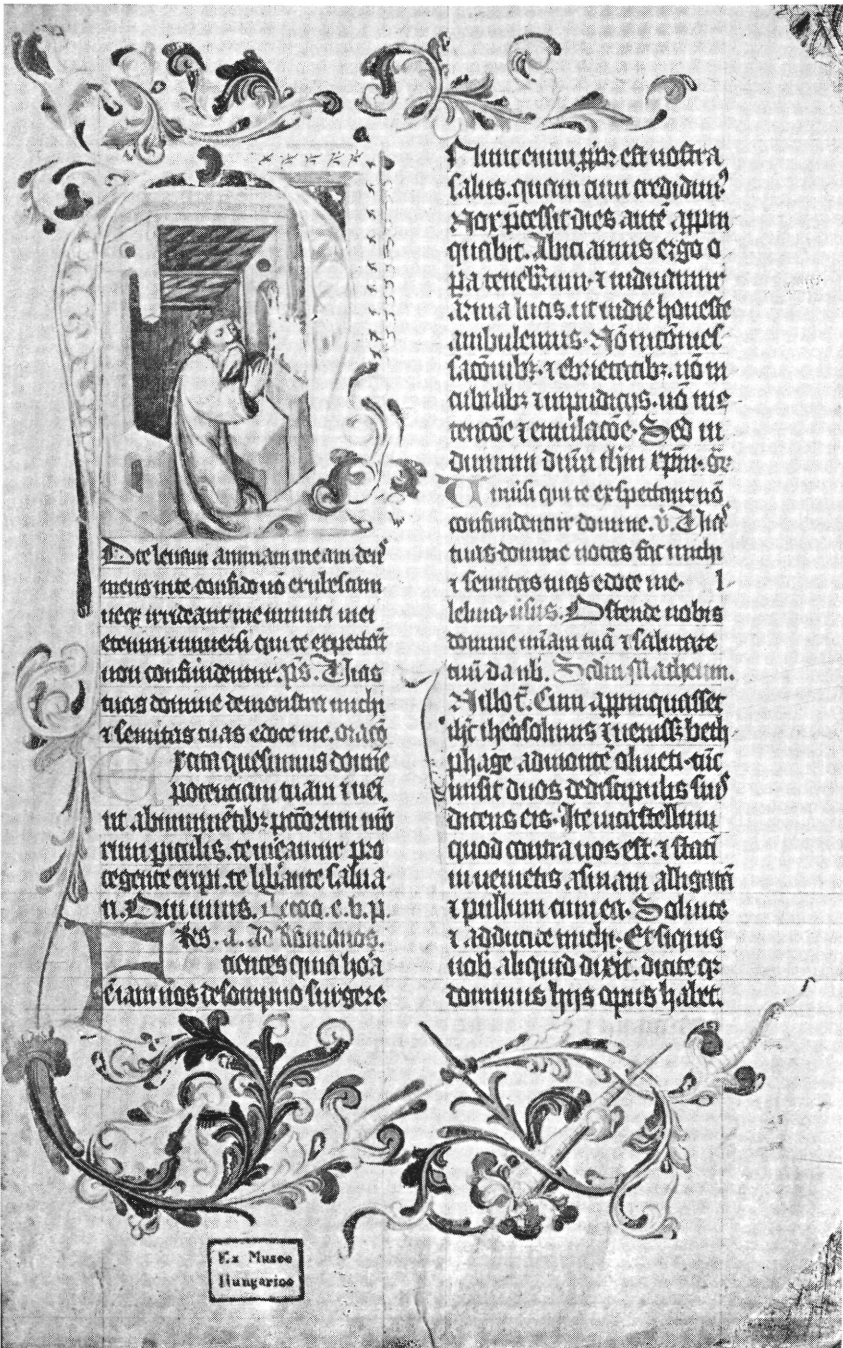 D te levam animam meam deus
meus in te confido nō erubescam
neqȝ irrideant me inimici mei
etenim universi qui te expectāt
non confundentur. p̄s. Vias
tuas domine demonstra michi
⁊ semitas tuas edoce me. oracō
Excita quesumus domīe
potenciam tuam ⁊ veī.
ut ab iminentibȝ pctōrum nrō
rum periculis. te mēamur pro
tegente eripi. te libānte salva
ri. Qui vivis. Leccio. e. b. p.
Fres. a. Ad Romanos.
cientes quia hora
ē iam nos de sompno surgere.
Nunc enim ꝓpior est nostra
salus. quam cum credidimꝰ
Nox p̄cessit dies autē appin
quabit. Abiciamus ergo o
pa tenebrarum. ⁊ induamur
arma lucis. ut in die honeste
ambulemus. Nō in cōmes
sacōnibȝ. ⁊ ebrietatibȝ. nō in
cubilibȝ ⁊ inpudicijs. nō in cō
tencōe ⁊ emulacōe. Sed in
duimini dn̄m ihm xp̄m. gr̄.
Univsi qui te exspectant nō
confundentur domine. v̄. Vias
tuas domine notas fac michi
⁊ semitas tuas edoce me. l
leluia. v̄sus. Ostende nobis
domine mīam tuā ⁊ salutare
tuū da nb̄. Scdm Matheum.
N illo t̄. Cum appinquasset
ihc̄ iherosolimis ⁊ venissȝ beth
phage ad montē oliveti. tūc
misit duos de discipulis suis
dicens eis. Ite in castellum
quod contra vos est. ⁊ statī
invenietis asinam alligatā
⁊ pullum cum ea. Solvite
⁊ adducite michi. Et si quis
vob̄ aliquid dixit. dicite qȝ
dominus hijs opus habet.
Ex Museo
Hungarico